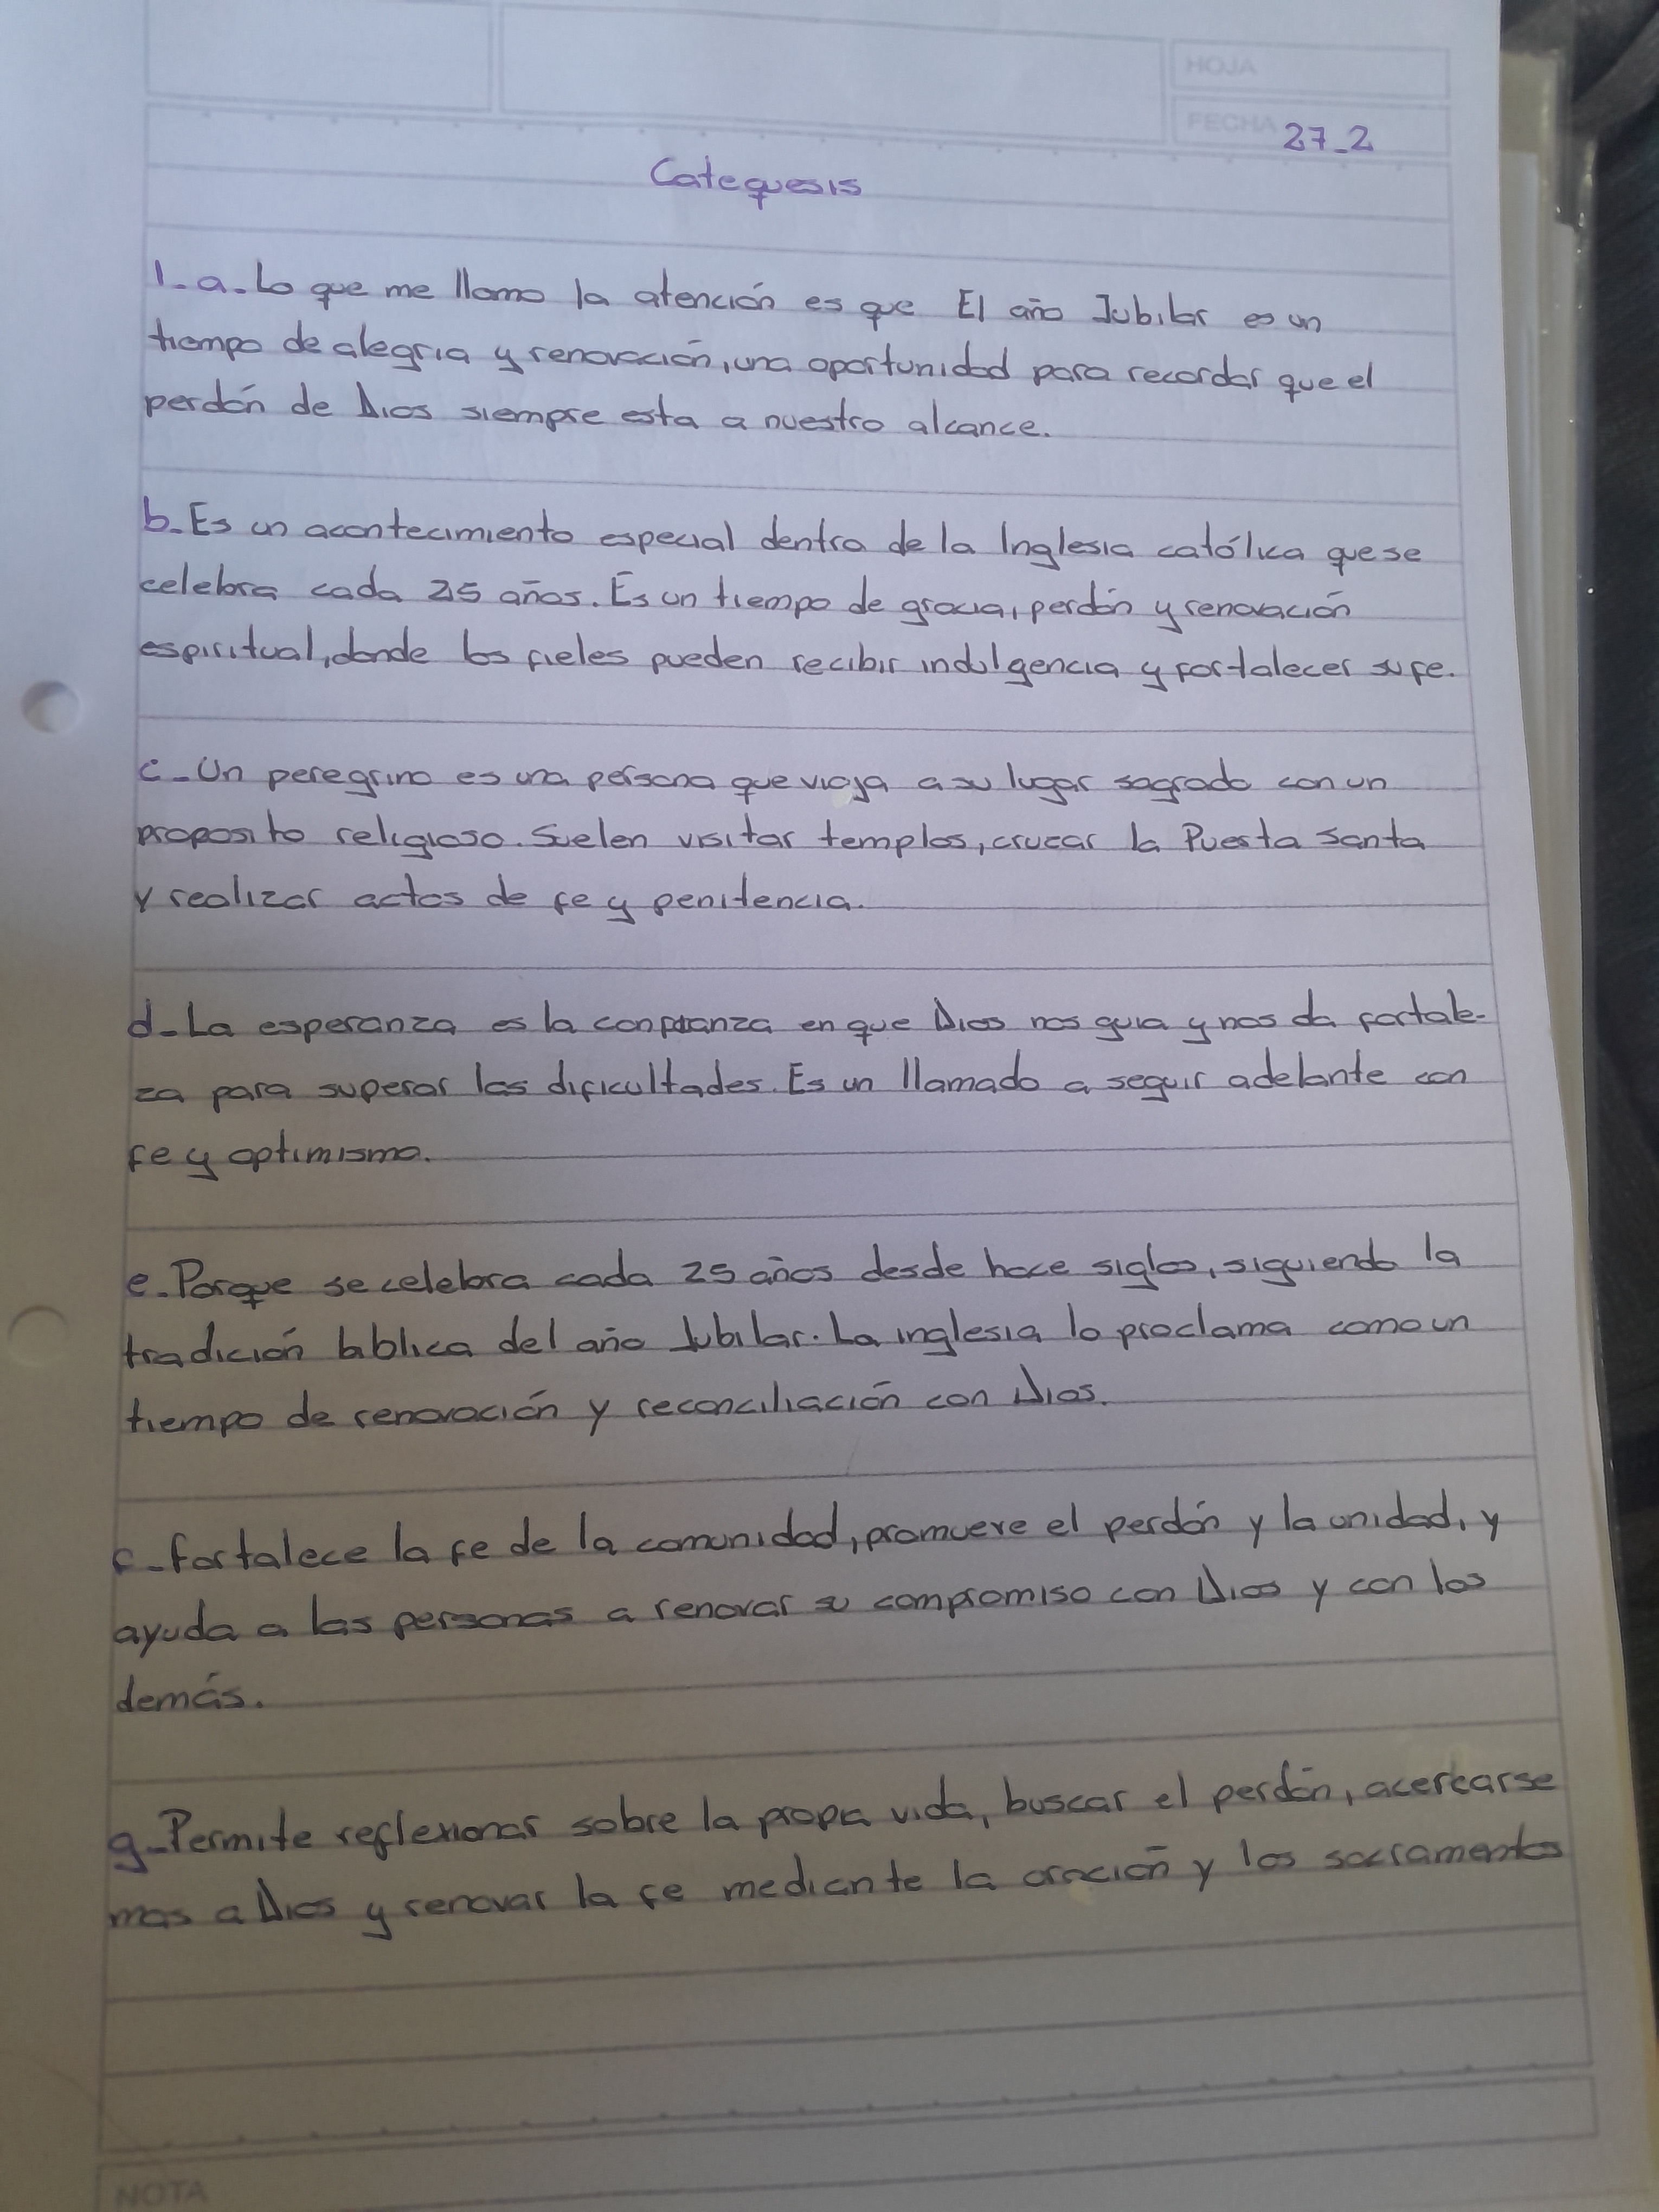 HOJA
FECHA 27_2
Catequesis
1_a_Lo que me llamo la atención es que El año Jubilar es un
tiempo de alegria y renovación, una oportunidad para recordar que el
perdón de Dios siempre esta a nuestro alcance.
b_Es un acontecimiento especial dentro de la Inglesia católica que se
celebra cada 25 años. Es un tiempo de gracia, perdón y renovación
espiritual, donde los fieles pueden recibir indulgencia y fortalecer su fe.
c_Un peregrino es una persona que viaja a su lugar sagrado con un
proposito religioso. Suelen visitar templos, cruzar la Puerta Santa
y realizar actos de fe y penitencia.
d_La esperanza es la confianza en que Dios nos guia y nos da fortale-
za para superar las dificultades. Es un llamado a seguir adelante con
fe y optimismo.
e_Porque se celebra cada 25 años desde hace siglos, siguiendo la
tradición biblica del año Jubilar. La inglesia lo proclama como un
tiempo de renovación y reconciliación con Dios.
f_fortalece la fe de la comunidad, promueve el perdón y la unidad, y
ayuda a las personas a renovar su compromiso con Dios y con los
demás.
g_Permite reflexionar sobre la propia vida, buscar el perdón, acercarse
mas a Dios y renovar la fe mediante la oración y los sacramentos
NOTA